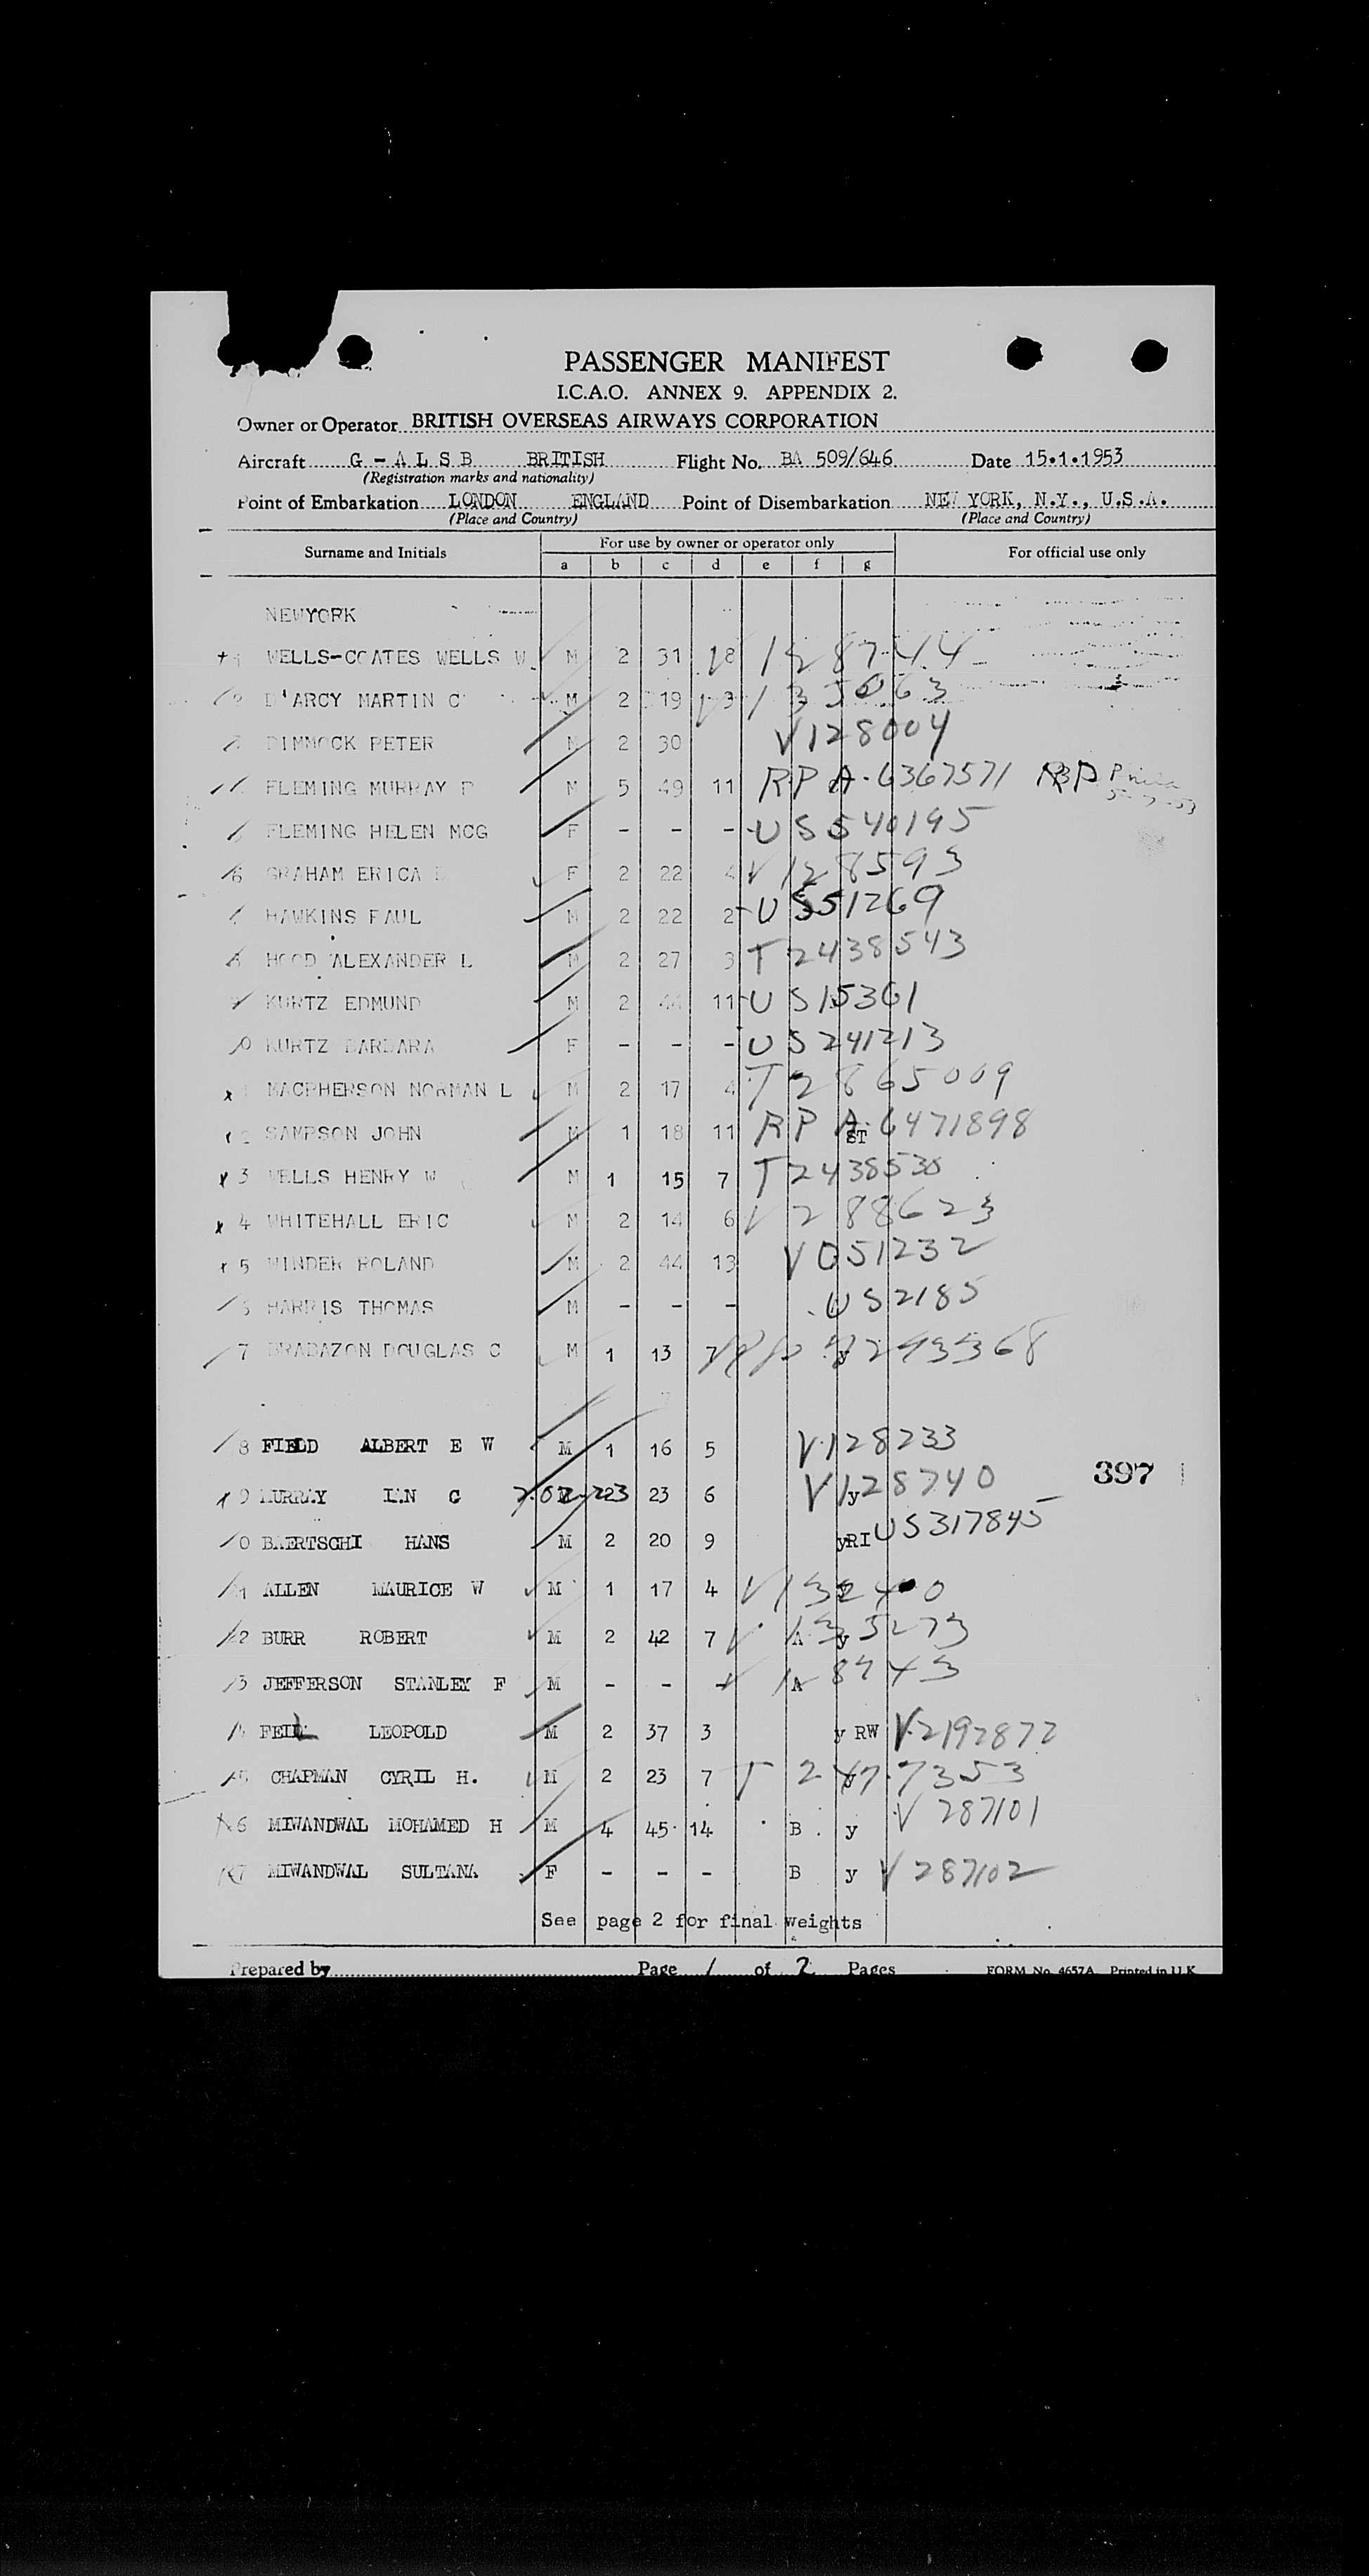 PASSENGER MANIFEST
I.C.A.O. ANNEX 9. APPENDIX 2.
Owner or Operator BRITISH OVERSEAS AIRWAYS CORPORATION
Aircraft G - A L S B BRITISH Flight No. BA 509/646 Date 15.1.1953
(Registration marks and nationality)
Point of Embarkation LONDON ENGLAND Point of Disembarkation NEW YORK, N.Y., U.S.A.
(Place and Country) (Place and Country)
Surname and Initials For use by owner or operator only For official use only
a b c d e f g
NEWYORK
WELLS-COATES WELLS W M 2 31 18 128744
2 D'ARCY MARTIN C M 2 19 3 135063
DIMMOCK PETER M 2 30 V128004
FLEMING MURRAY M 5 49 11 RP A-6367571 RBP
FLEMING HELEN MCG F - - - US540195
6 GRAHAM ERICA F 2 22 4 V128593
HAWKINS PAUL M 2 22 2 US51269
HOOD ALEXANDER L M 2 27 3 T2438543
KURTZ EDMUND M 2 44 11 US15361
0 KURTZ BARBARA F - - - US241213
MACPHERSON NORMAN L M 2 17 4 T2865009
2 SAMPSON JOHN M 1 18 11 RP A-6471898 ST
3 WELLS HENRY W M 1 15 7 T2438538
4 WHITEHALL ERIC M 2 14 6 V288623
5 WINDER ROLAND M 2 44 13 V051232
HARRIS THOMAS M - - - US2185
7 BRABAZON DOUGLAS C M 1 13 7 y
8 FIELD ALBERT E W M 1 16 5 V128233
397
9 MURRAY IAN G 23 6 y V128740
0 BAERTSCHI HANS M 2 20 9 yRI US317845
1 ALLEN MAURICE W M 1 17 4
2 BURR ROBERT M 2 42 7 A y V135273
3 JEFFERSON STANLEY F M - - - A V128743
FEIL LEOPOLD M 2 37 3 y RW V2192872
5 CHAPMAN CYRIL H. M 2 23 7 T2477353
6 MIWANDWAL MOHAMED H M 4 45 14 B y V287101
7 MIWANDWAL SULTANA F - - - B y V287102
See page 2 for final weights
Prepared by Page 1 of 2 Pages FORM No. 4657A Printed in U.K.